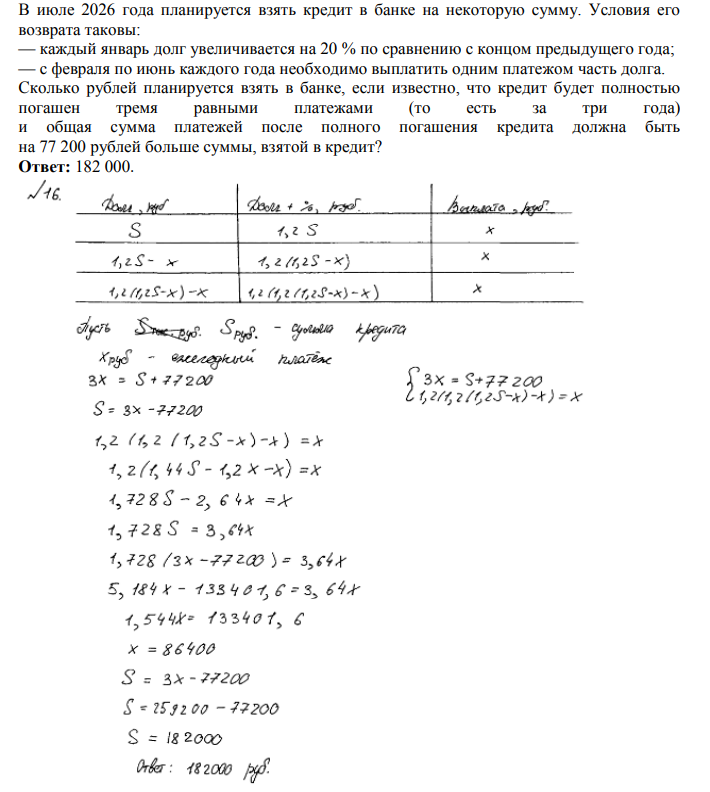 В июле 2026 года планируется взять кредит в банке на некоторую сумму. Условия его
возврата таковы:
— каждый январь долг увеличивается на 20 % по сравнению с концом предыдущего года;
— с февраля по июнь каждого года необходимо выплатить одним платежом часть долга.
Сколько рублей планируется взять в банке, если известно, что кредит будет полностью
погашен тремя равными платежами (то есть за три года)
и общая сумма платежей после полного погашения кредита должна быть
на 77 200 рублей больше суммы, взятой в кредит?
Ответ: 182 000.
№16.
Долг, руб Долг + %, руб. Выплата, руб.
S 1,2 S x
1,2S - x 1,2(1,2S-x) x
1,2(1,2S-x)-x 1,2(1,2(1,2S-x)-x) x
Пусть S руб. - сумма кредита
x руб - ежегодный платёж
3x = S + 77200 { 3x = S+77200
S = 3x - 77200 1,2(1,2(1,2S-x)-x) = x
1,2(1,2(1,2S-x)-x) = x
1,2(1,44S - 1,2x - x) = x
1,728S - 2,64x = x
1,728S = 3,64x
1,728(3x - 77200) = 3,64x
5,184x - 133401,6 = 3,64x
1,544x = 133401,6
x = 86400
S = 3x - 77200
S = 259200 - 77200
S = 182000
Ответ: 182000 руб.